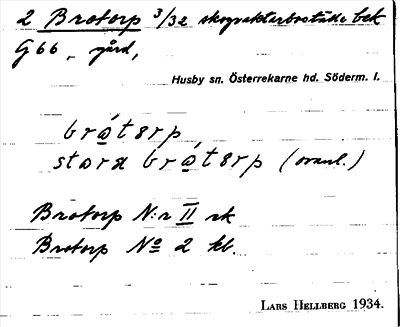 2 Brotorp 3/32 skogvaktarboställe bek
G 66 – gård,
Husby sn. Österrekarne hd. Söderm. l.
bråtsrp
stora bråtsrp (ovanl.)
Brotorp N:r II rk
Brotorp No 2 kb.
LARS HELLBERG 1934.